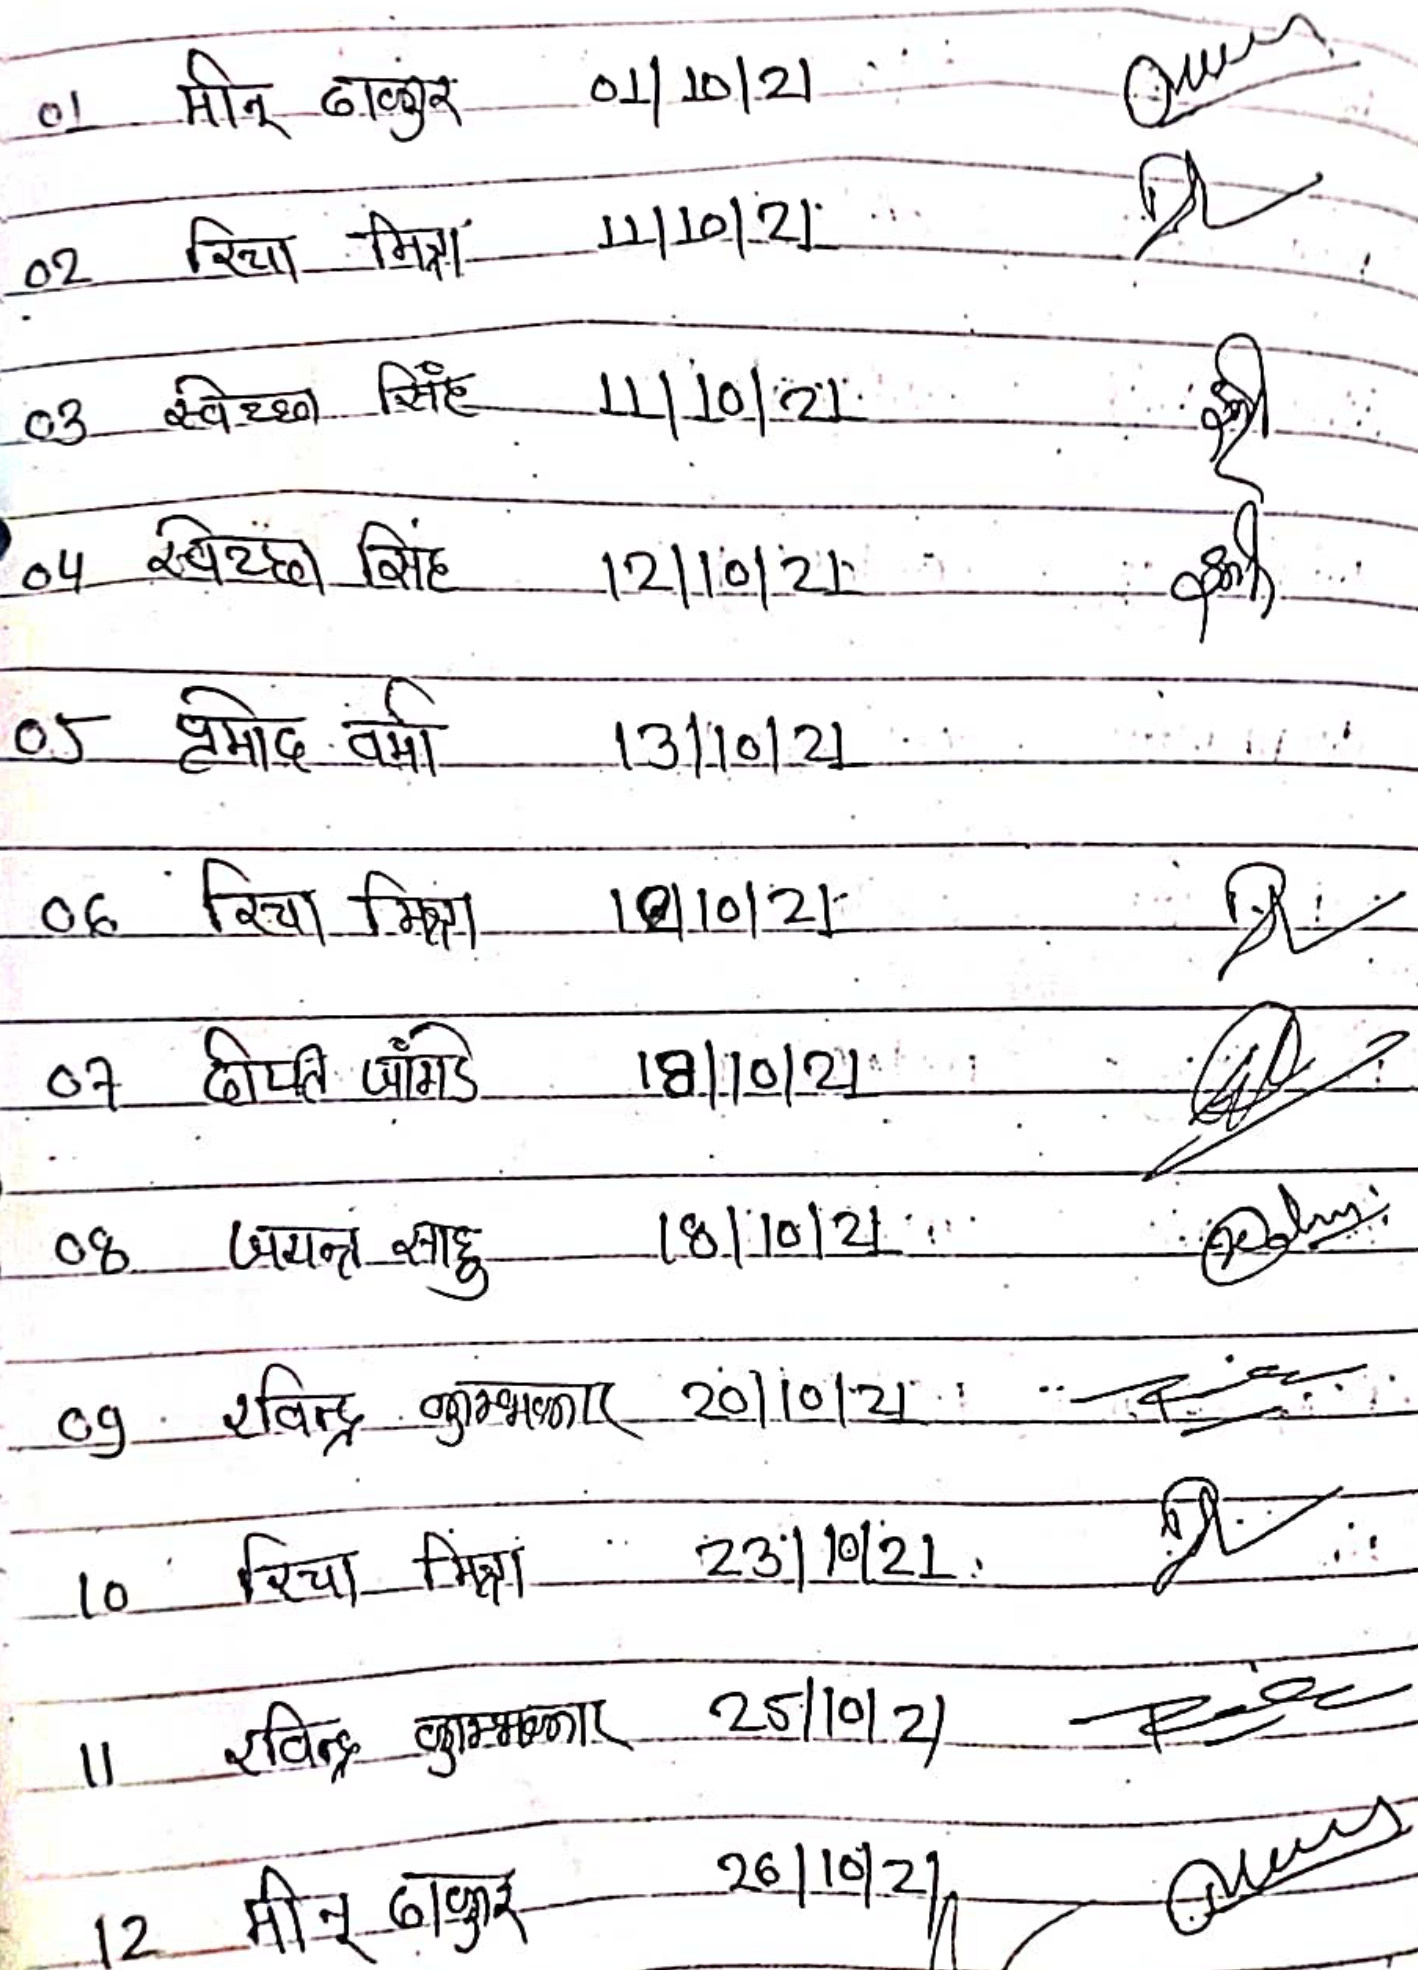 01 मीनू ठाकुर 01/10/21
02 रिचा मिश्रा 11/10/21
03 स्वेच्छा सिंह 11/10/21
04 स्वेच्छा सिंह 12/10/21
05 प्रमोद वर्मा 13/10/21
06 रिचा मिश्रा /10/21
07 दीप्ति जाँगडे 18/10/21
08 जयन्त साहु 18/10/21
09 रविन्द्र कुम्भकार 20/10/21
10 रिचा मिश्रा 23/10/21
11 रविन्द्र कुम्भकार 25/10/21
12 मीनू ठाकुर 26/10/21